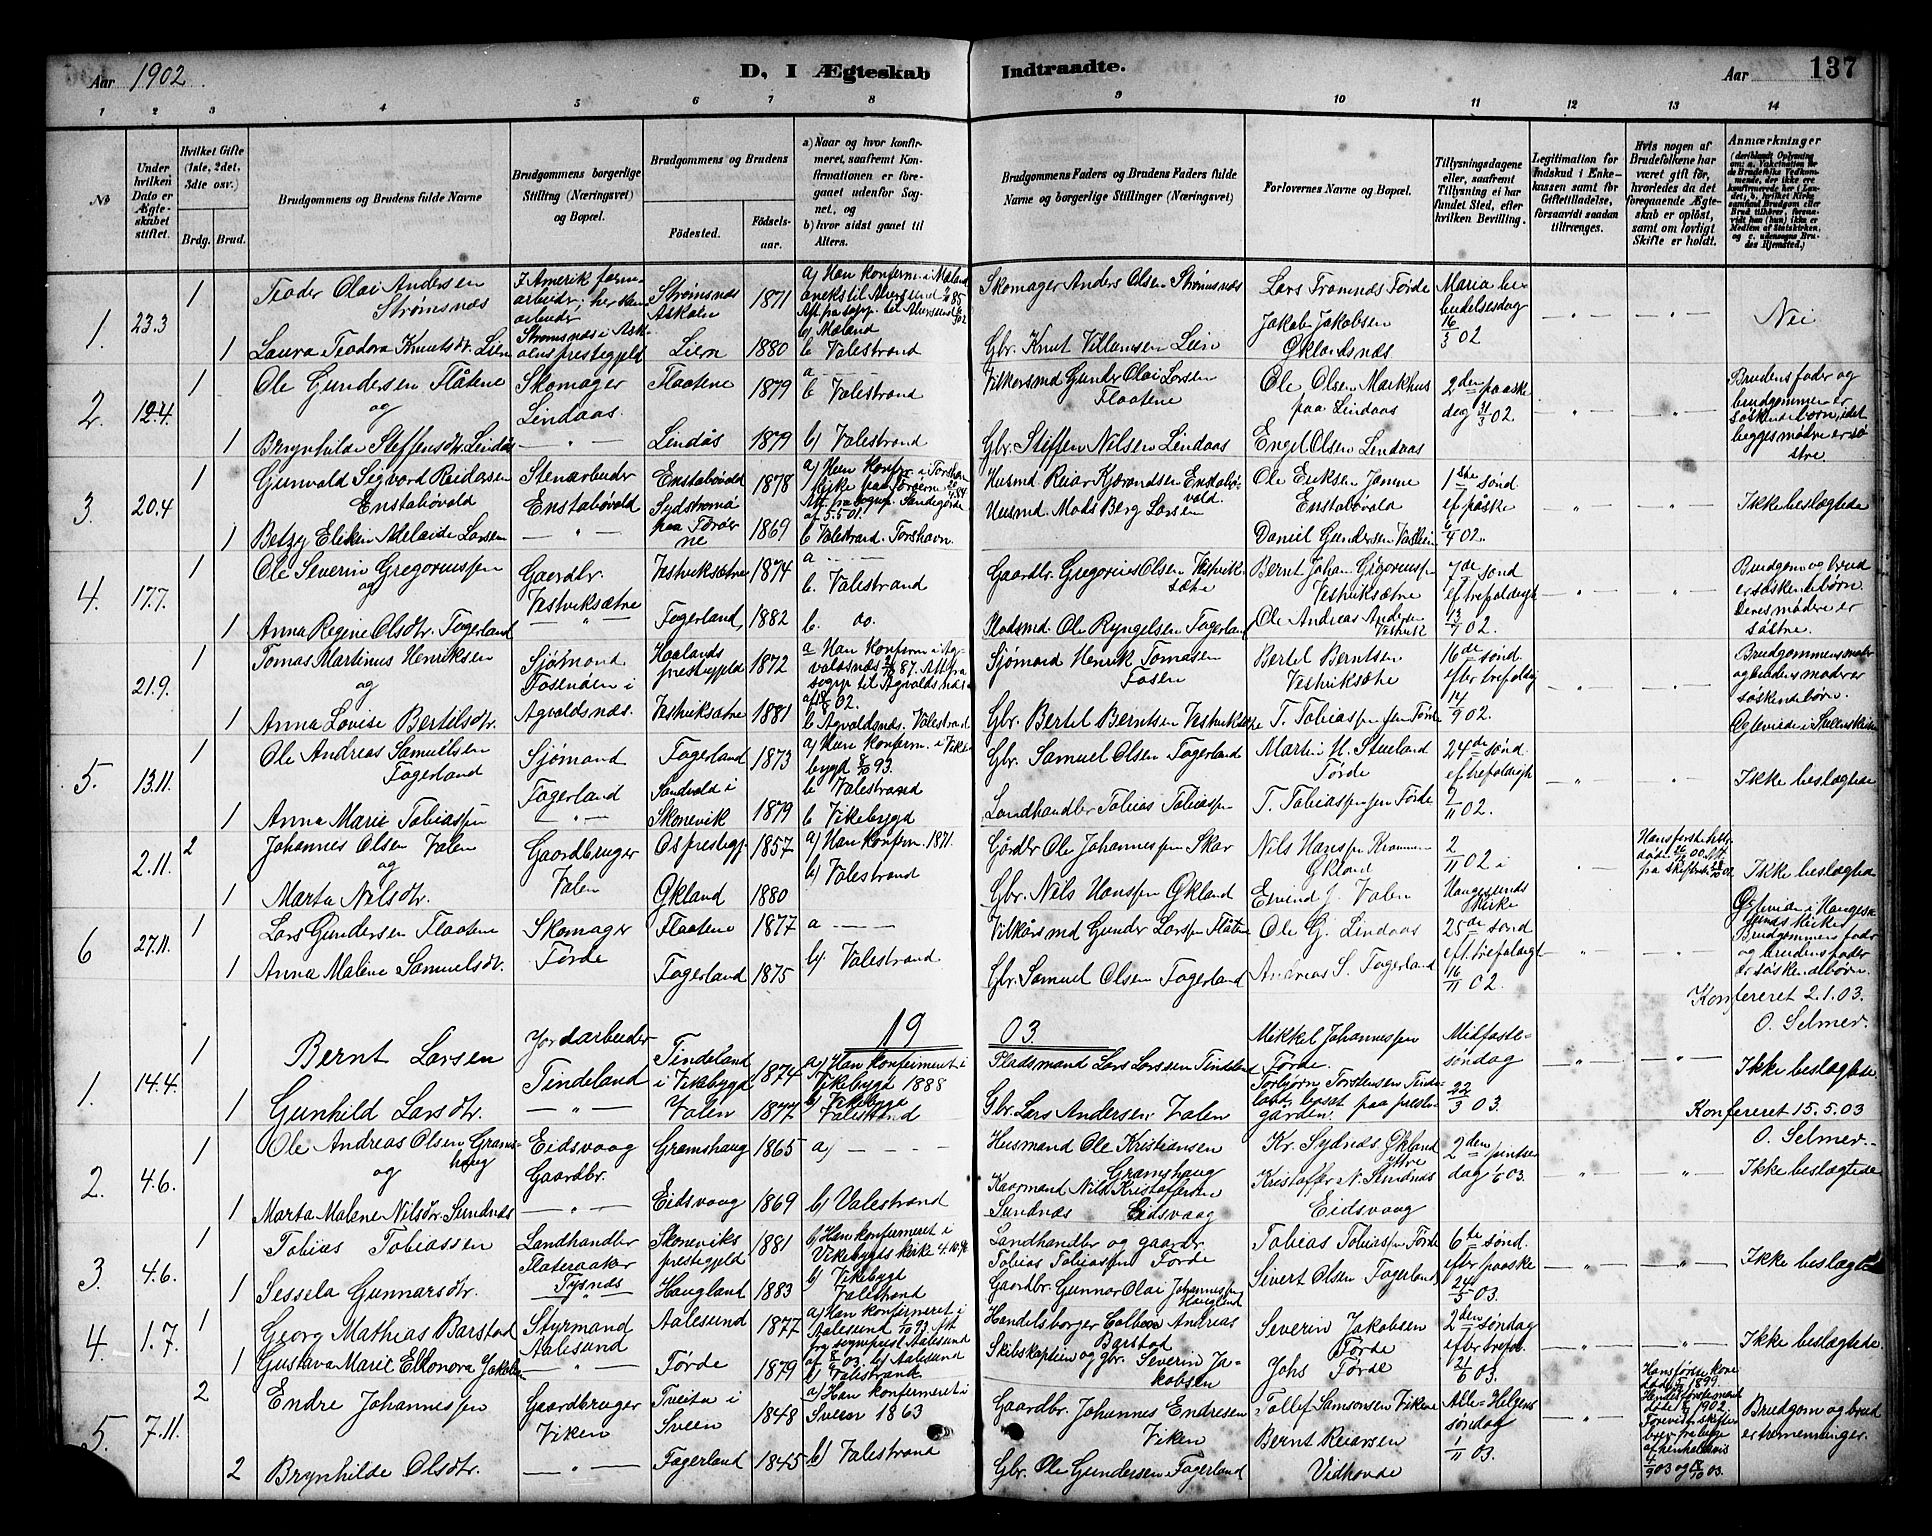 Aar 1902
D, I Ægteskab Indtraadte.
Aar 137
1 2 3 4 5 6 7 8 9 10 11 12 13 14
No
Under hvilken Dato er Ægteskabet stiftet.
Hvilket Gifte (1ste, 2det, 3die osv.)
Brdg. Brud.
Brudgommens og Brudens fulde Navne
Brudgommens borgerlige Stilling (Næringsvei) og Bopæl.
Brudgommens og Brudens
Födested.
Födselsaar.
a) Naar og hvor konfirmeret, saafremt Konfirmationen er foregaaet udenfor Sognet, og
b) hvor sidst gaaet til Alters.
Brudgommens Faders og Brudens Faders fulde Navne og borgerlige Stillinger (Næringsvei)
Forlovernes Navne og Bopæl.
Tillysningsdagene eller, saafremt Tillysning ei har fundet Sted, efter hvilken Bevilling.
Legitimation for Indskud i Enkekassen samt for Giftetilladelse, forsaavidt saadan tiltrænges.
Hvis nogen af Brudefolkene har været gift før, hvorledes da det foregaaende Ægteskab er oplöst, samt om lovligt Skifte er holdt.
Anmærkninger
1. 23.3 1 Teodor Olai Andersen Strømsnæs
I Amerik farmarbeider; her kun arbeider
Strømsnæs Askøen 1871
Skomager Anders Olsen Strømsnæs
Lars Tromsnæs Førde
Maria bebudelsesdag 16/3 02
Nei
1 Laura Teodora Knutsdtr. Lien
Strømsnæs i Askøens prestegjeld
Lien 1880 b Valestrand
Gbr. Knut Villumsen Lien
Jakob Jakobsen Øklandsnæs
2. 12.4 1 Ole Gundersen Flåtene og
Skomager Lindaas.
Flaatene 1879 a — b Valestrand
Vilkorsmd Gunder Olai Larsen Flaatene
Ole Olsen Markhus paa Lindaas
2den paaskedag 31/3 02
Brudens fader og brudgommen er søskendebørn, idet begges mødre er søstre.
1 Brynhilde Steffensdtr Lindås
— " — Lindås 1879 b) Valestrand
Gbr. Steffen Nilsen Lindaas
Engel Olsen Lindaas
3. 20.4 1 Gunvald Sigvard Reidarsen Enstabøvold
Stenarbeider Enstabøvold
Enstabøvold 1878
Husmd Reiar Kjørandsen Enstabøvold.
Ole Eriksen Jamne Enstabøvold
1ste sønd ef påske 6/4 02.
Ikke beslægtede
1 Betzy Eliken Adelaide Larsen
— " — Sydstromø paa Færøerne 1869 b Valestrand. Torshavn.
Husmd. Mads Berg Larsen
Daniel Gundersen Vastlien
4. 17.7. 1 Ole Severin Gregoriussen og
Gaardbr. Vestviksætre
Vestviksætre 1874 a — b. Valestrand
Gaardbr. Gregorius Olsen Vestviksætre
Bernt Johan Gregoriussen Vestviksætre
7de sønd ef trefoldigh 13/7 02.
Brudgom og brud er søskendebørn. Deres mødre er søstre.
1 Anna Regine Olsdtr. Fagerland
— " — Fagerland, 1882 b. do.
Pladsmd. Ole Ryngelsen Fagerland
Ole Andreas Andersen Vestvik
21.9. 1 Tomas Martinus Henriksen og
Sjømand Fosenøen i Agvaldsnæs.
Haalands prestegjeld 1872
Sjømand Henrik Tomasen Fosen
Bertel Berntsen Vestviksætre
16de sønd. efter trefoldigh 14/9 02.
1 Anna Lovise Bertelsdtr.
Vestviksætre 1881 b Agvaldsnæs. Valestrand
Gbr. Bertel Berntsen Vestviksætre
T. Tobiassen Førde
5. 13.11. 1 Ole Andreas Samuelsen Fagerland
Sjømand Fagerland
Fagerland 1873 a) Han konferm. i Vikebygd 8/10 93. b Valestrand
Gbr. Samuel Olsen Fagerland
Martin H. Stueland Førde
24de sønd. ef trefoldigh 9/11 02.
Ikke beslægtede
1 Anna Marie Tobiassen
— " — Sandvold i Skonevik 1879 b Vikebygd
Landhandler Tobias Tobiassen
T. Tobiassen Førde
2.11. 2 Johannes Olsen Valen og
Gaardbruger Valen
Os prestegj. 1857 a) Han konferm. 1871. b) Valestrand
Gårdbr Ole Johannessen Skar
Nils Hanssen Økland
2/11 02 i Haugesunds kirke
Ikke beslægtede
1 Marta Nilsdtr.
Økland 1880
Gbr. Nils Hanssen Økland
Eivind J. Valen
6 27.11. 1 Lars Gundersen Flaatene
Skomager Førde
Flaatene 1877 a — b) Valestrand.
Vilkårsmd Gunder Larsen Flåtene
Ole G. Lindaas
25de sønd eft. trefoldigh 16/11 02.
Brudgommens fader og brudens fader er søskendebørn.
1 Anna Malene Samuelsdtr.
Fagerland 1875
Gbr. Samuel Olsen Fagerland
Andreas S. Fagerland
Konfereret 2.1.03.
O. Selmer.
19 03.
1. 14.4. 1 Bernt Larsen
Jordarbeider Tindeland
Tindeland i Vikebygd 1874 a) Han konfermeret i Vikebygd 1888 b) Vikebygd
Pladsmand Lars Larssen Tindeland
Mikkel Johannessen Førde.
Midfastesøndag 22/3 03.
Ikke beslægtede
1 Gunhild Larsdtr.
— " — Valen 1877 Valestrand
Gbr. Lars Andersen Valen
Torbjørn Torstensen Tindeland, bosat paa prestegården.
Konfereret 15.5.03
O. Selmer.
2. 4.6. 1 Ole Andreas Olsen Gramshaug og
Eidsvaag Gaardbr.
Gramshaug 1865 a) — — —
Husmand Ole Kristiansen Gramshaug
Kr. Sydnæs Økland Ytre
2den pintsedag 1/6 03.
Ikke beslægtede
1 Marta Malene Nilsdtr Sundnæs
— " — Eidsvaag 1869 b) Valestrand
Kaarmand Nils Kristoffersen Sundnæs Eidsvaag
Kristoffer N. Sundnæs Eidsvaag
3. 4.6. 1 Tobias Tobiassen
Landhandler Flateraaker Tysnæs
Skoneviks prestegjeld 1881 b) Han konfermeret i Vikebygds kirke 4.10.96 b) Vikebygd
Landhandler og gaardr. Tobias Tobiassen Førde
Tobias Tobiassen Førde
6te sønd. efter paaske 24/5 03.
Ikke beslægtede
1 Sessela Gunnarsdtr.
— " — Haugland 1883 Valestrand
Gaardbr. Gunnar Olai Johannessen Haugland
Sivert Olsen Fagerland
4. 1.7. 1 Georg Mathias Barstad
Styrmand Aalesund
Aalesund 1877 a) Han konfermeret i Aalesund 1/10 93. Att fra sogneprest Aalesund af 8/6 03. b) Aalesund
Handelsborger Colben Andreas Barstad
Severin Jakobsen Førde
2den søndag efter trefold. 21/6 03.
Ikke beslægtede
1 Gustava Marie Elkonora Jakobsen
— " — Førde 1879 b) Valestrank
Skibskaptein og gbr. Severin Jakobsen
Johs Førde
5. 7.11. 2 Endre Johannessen
Gaardbruger Viken
Tveita i Sveen 1848 a) Han konfermeret i Sveen 1863
Gaardbr. Johannes Endresen Viken
Tollef Samsonsen Vikene
Alle-Helgens søndag 1/11 03.
Brudgom og brud er tremenninger.
2 Brynhilde Olsdtr.
— " — Fagerland 1845 b) Valestrand
Gbr. Ole Gundersen Fagerland
Bernt Reiarsen Vidhovde